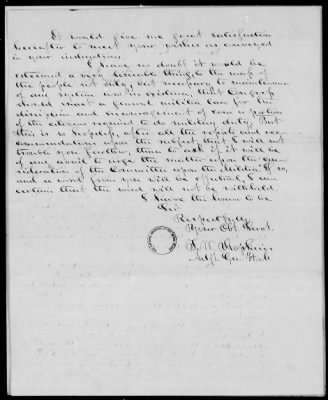 It would give me great satisfaction
hereafter to meet your wishes as conveyed
in your instructions.
I have no doubt it would be
esteemed a very desirable thing, to the mass of
the people not only, but necessary to maintenance
of any system now in existence, that Congress
should enact a general militia law for the
discipline and encouragement of that portion
of the citizens required to do military duty. But
this is so hopeless, after all the reports and rec-
ommendations upon the subject, that I will not
trouble you further, than to ask if it will be
of any avail to urge the matter upon the con-
sideration of the Committee upon the Militia? If so,
and a word from you will be effectual, I am
certain that the word will not be withheld.
I have the honor to be
Sir
Respectfully
Your Obt. Servt.
Hopkins
Adjt. Gen.